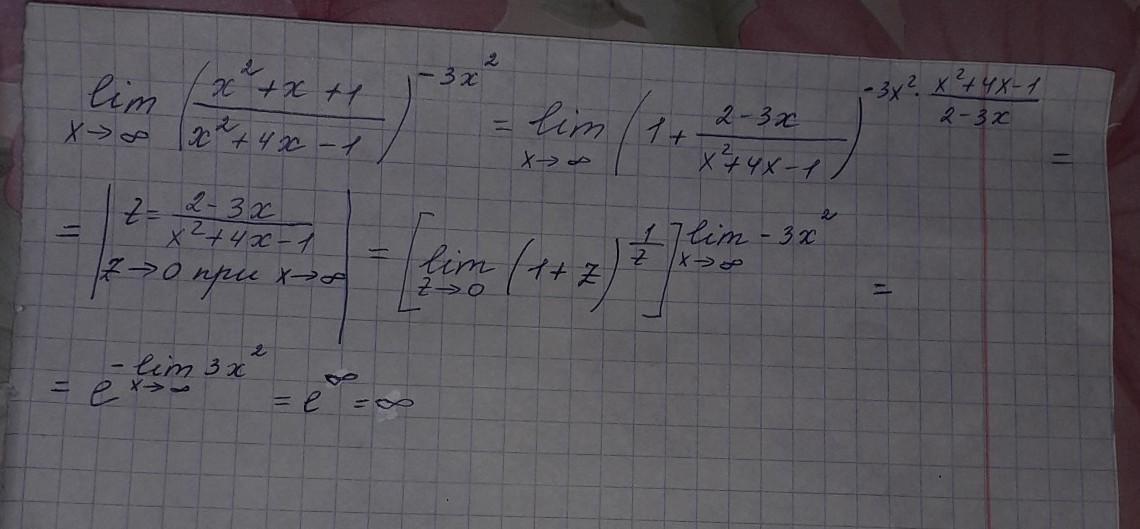 lim x→∞ ((x²+x+1)/(x²+4x-1))^(-3x²) = lim x→∞ (1+(2-3x)/(x²+4x-1))^(-3x²·(x²+4x-1)/(2-3x)) =
= |z=(2-3x)/(x²+4x-1) z→0 при x→∞| = [lim z→0 (1+z)^(1/z)]^(lim x→∞ -3x²) =
= e^(-lim x→∞ 3x²) = e^∞ = ∞